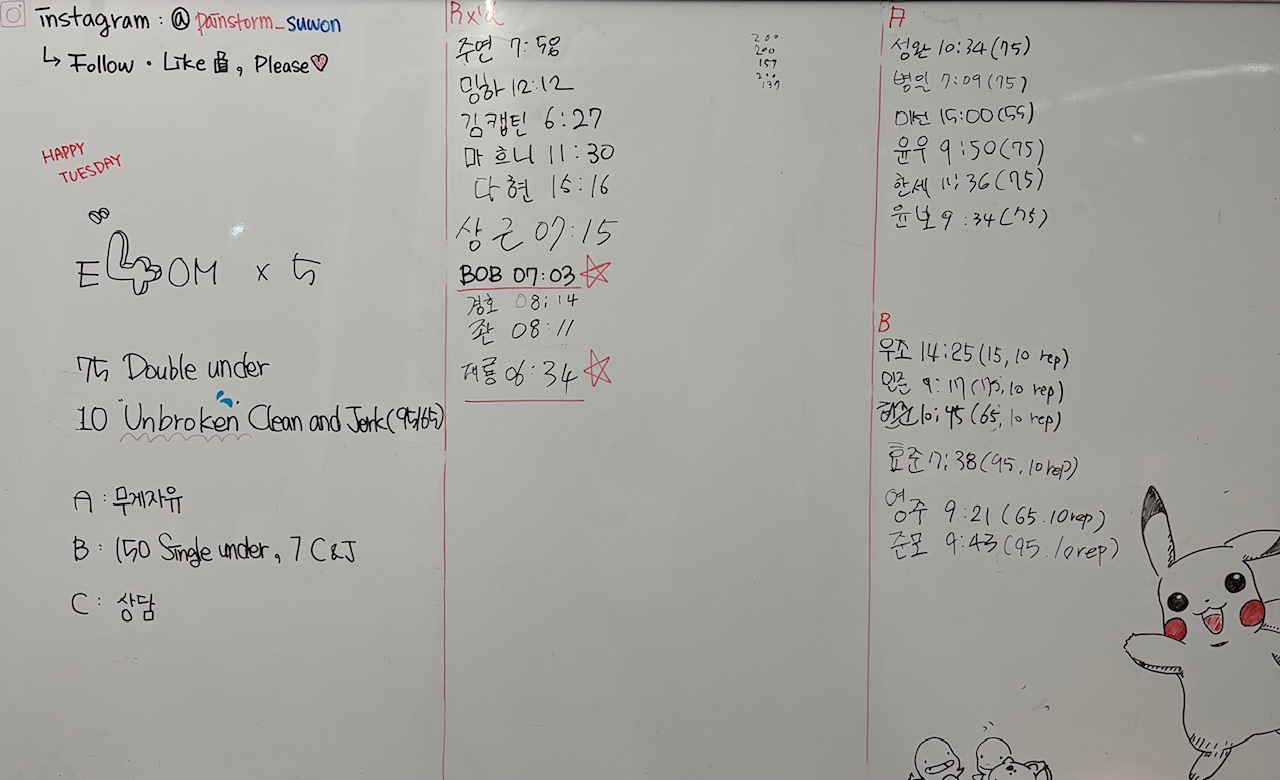 instagram : @painstorm_suwon
↳ Follow · Like 👍, Please♡
HAPPY
TUESDAY
E4OM x 5
75 Double under
10 "Unbroken" Clean and Jerk(95/65)
A : 무게자유
B : 150 Single under, 7 C&J
C : 상담
Rx'd
주연 7:58
밍하 12:12
김캡틴 6:27
마흐니 11:30
다현 15:16
상근 07:15
BOB 07:03 ☆
경호 08:14
좐 08:11
대룡 06:34 ☆
200
200
157
200
137
A
성완 10:34(75)
병일 7:09(75)
미선 15:00(55)
윤우 9:50(75)
한세 11:36(75)
윤보 9:34(75)
B
우소 14:25(15, 10 rep)
민준 9:17(75, 10 rep)
10:45 (65, 10 rep)
효준 7:38(95, 10 rep)
영주 9:21 (65. 10 rep)
준모 9:43(95. 10 rep)